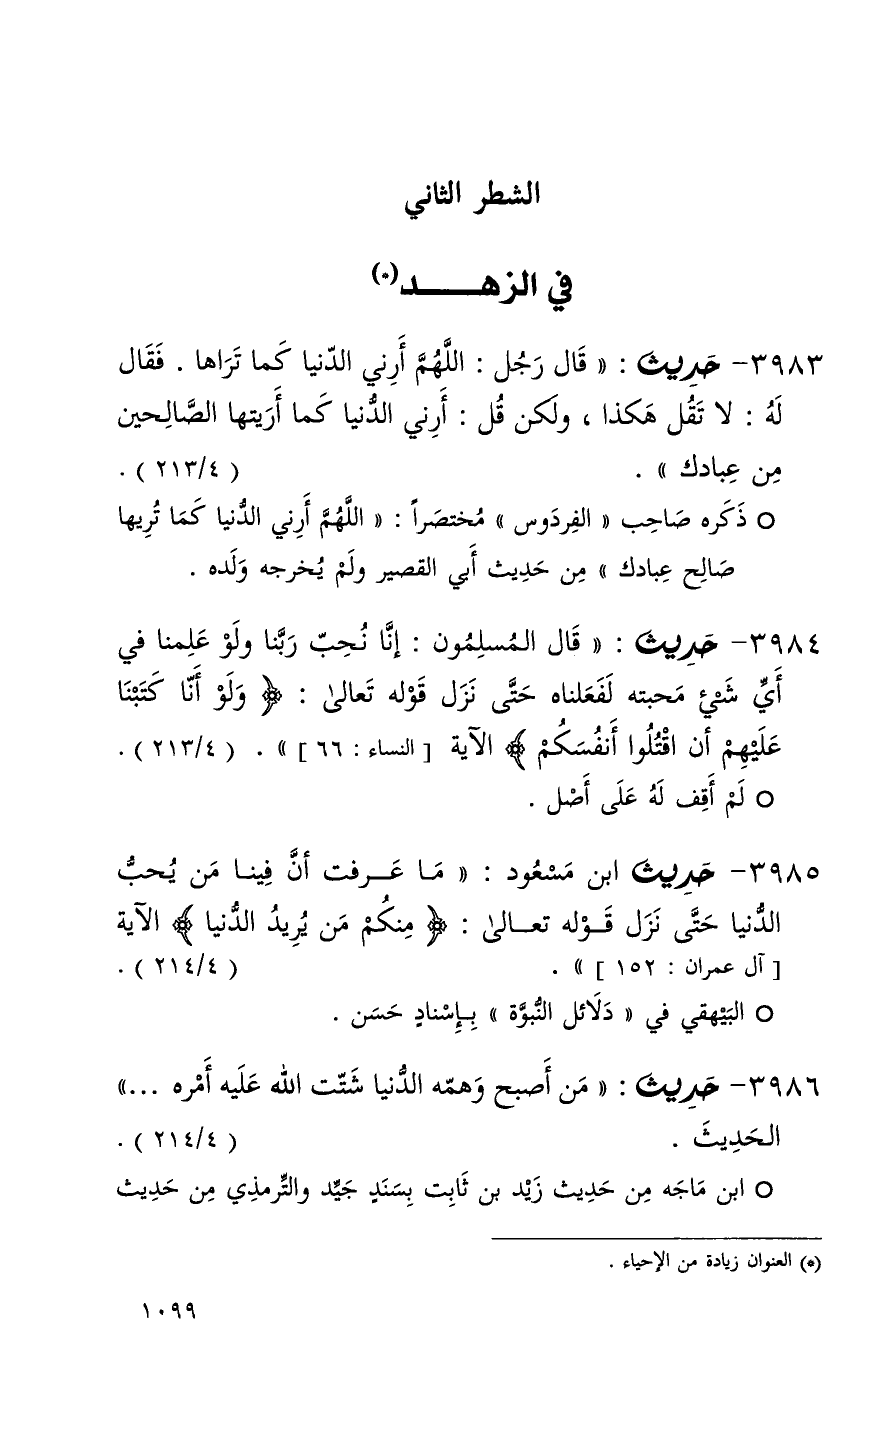 الشطر الثاني
في الزهـــــد(*)
٣٩٨٣- حَدِيث : « قَال رَجُل : اللَّهُمَّ أَرِني الدّنيا كَما تَرَاها . فَقَال
لَهُ : لا تَقُل هَكذا ، ولَكن قُل : أَرِني الدُّنيا كَما أَرَيتها الصَّالِحين
مِن عِبادك » . ( ٢١٣/٤ ) .
○ ذَكَره صَاحِب « الفِردَوس » مُختصَراً : « اللَّهُمَّ أَرِني الدُّنيا كَمَا تُرِيها
صَالِح عِبادك » مِن حَدِيث أَبي القصير ولَمْ يُخرجه وَلَده .
٣٩٨٤- حَدِيث : « قَال المُسلِمُون : إنَّا نُحِبّ رَبَّنا ولَوْ عَلِمنا في
أَيِّ شَيْءٍ مَحبته لَفَعَلناه حَتَّى نَزَل قَوْله تَعالىٰ : ﴿ وَلَوْ أَنَّا كَتَبْنَا
عَلَيْهِمْ أن اقْتُلُوا أَنفُسَكُمْ ﴾ الآية [ النساء : ٦٦ ] » . ( ٢١٣/٤ ) .
○ لَمْ أَقِف لَهُ عَلَى أَصْل .
٣٩٨٥- حَدِيث ابن مَسْعُود : « مَـا عَـرفت أنَّ فِينـا مَن يُحبُّ
الدُّنيا حَتَّى نَزَل قَـوْله تعـالىٰ : ﴿ مِنكُمْ مَن يُرِيدُ الدُّنيا ﴾ الآية
[ آل عمران : ١٥٢ ] » . ( ٢١٤/٤ ) .
○ البَيْهقي في « دَلَائل النُّبوَّة » بِـإِسْنادٍ حَسَن .
٣٩٨٦- حَدِيث : « مَن أَصبح وَهمّه الدُّنيا شَتّت الله عَلَيه أَمْره ...»
الحَدِيثَ . ( ٢١٤/٤ ) .
○ ابن مَاجَه مِن حَدِيث زَيْد بن ثَابِت بِسَنَدٍ جَيِّد والتِّرمذِي مِن حَدِيث
(*) العنوان زيادة من الإحياء .
١٠٩٩